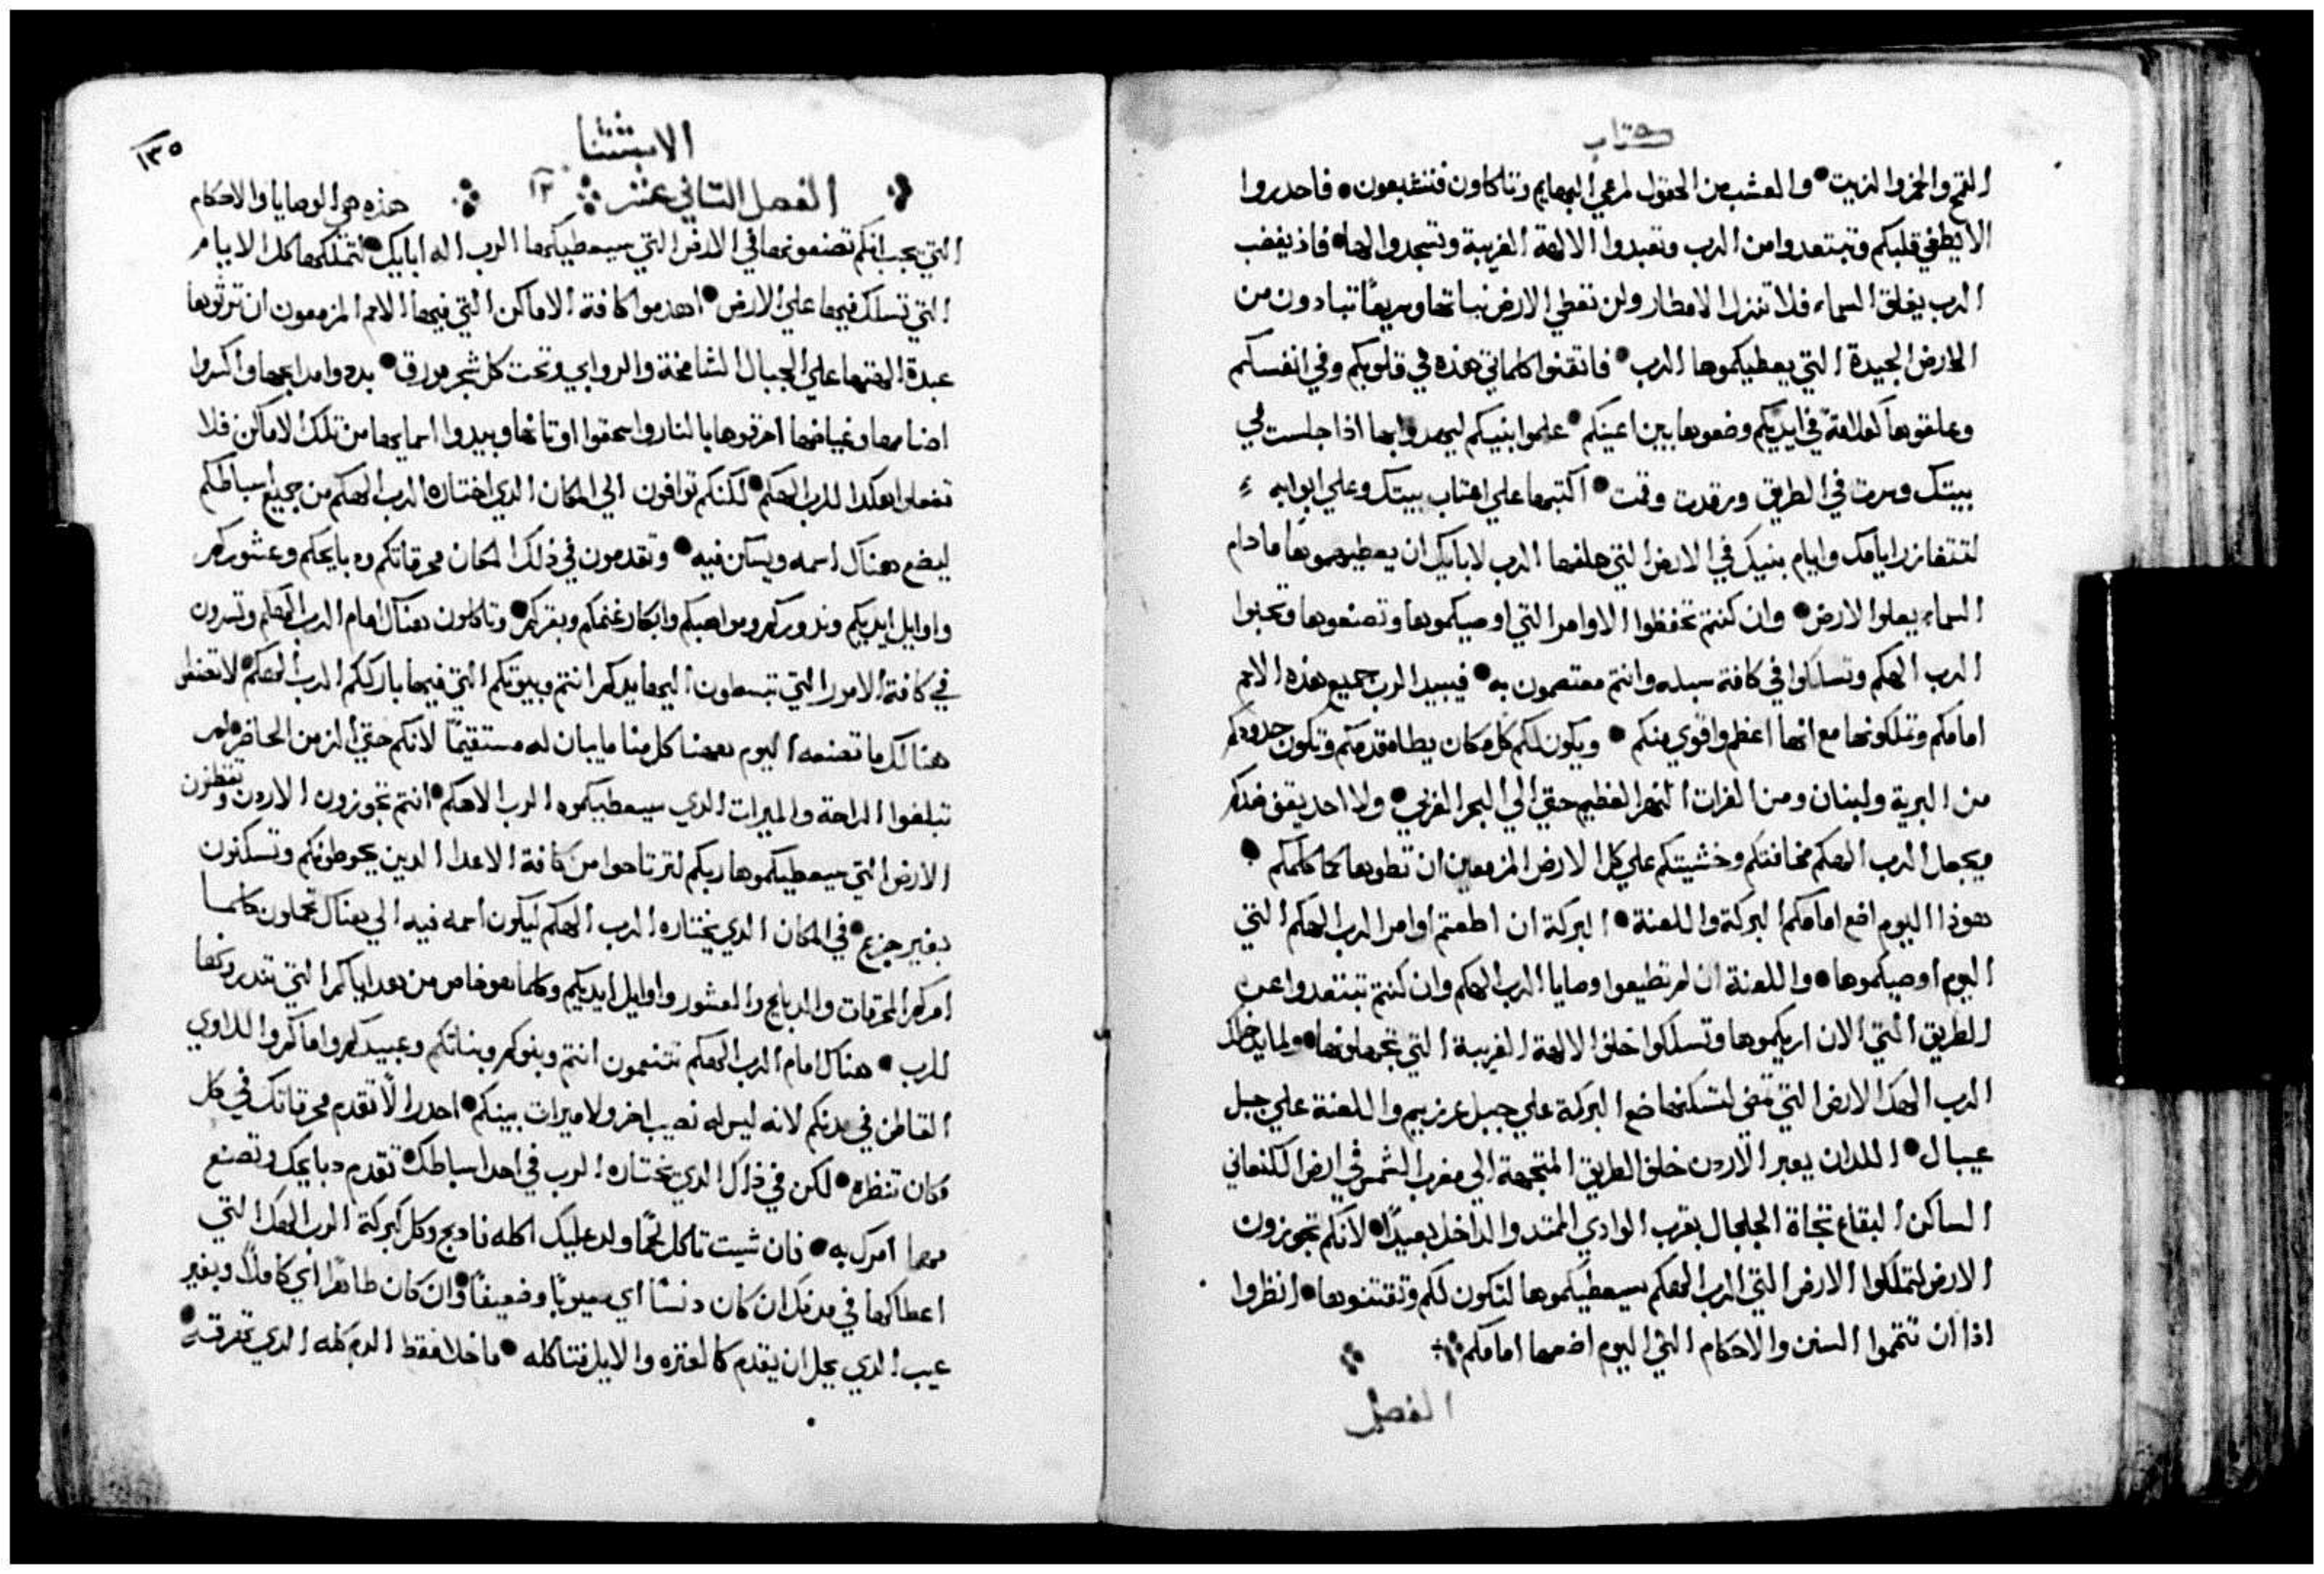 كتاب
القمح والخمر والزيت • والعشب من الحقول لمرعي البهايم وتاكلون فتشبعون • فاحدروا
الا يطغي قلبكم وتبتعدوا من الرب وتعبدوا الالهة الغريبة وتسجدوا لها • فاذ يغضب
الرب يغلق السماء فلا تنزل الامطار ولن تعطي الارض نباتها وسريعًا تبادون من
الارض الجيدة التي يعطيكموها الرب • فاتقنوا كلماتي هذه في قلوبكم وفي انفسكم
وعلقوها كعلامة في ايديكم وضعوها بين اعينكم • علموا بنيكم ليهدوا بها اذا جلست في
بيتك وسرت في الطريق ورقدت وقمت • اكتبها علي اعتاب بيتك وعلي ابوابه
لتتغازر ايامك وايام بنيك في الارض التي حلفها الرب لابايك ان يعطيهموها ما دام
السماء يعلوا الارض • وان كنتم تحفظوا الاوامر التي اوصيكموها وتصنعوها وتحبوا
الرب الهكم وتسلكوا في كافة سبله وانتم معتصمون به • فيبيد الرب جميع هذه الامم
امامكم وتملكونها مع انها اعظم واقوي منكم • ويكون لكم كل مكان يطاه قدمكم وتكون حدودكم
من البرية ولبنان ومن الفرات النهر العظيم حتي الي البحر الغربي • ولا احد يقف ضدكم
ويجعل الرب الهكم مخافتكم وخشيتكم علي كل الارض المزمعين ان تطوها كما كلمكم •
هوذا اليوم اضع امامكم البركة واللعنة • البركة ان اطعتم اوامر الرب الهكم التي
اليوم اوصيكموها • واللعنة ان لم تطيعوا وصايا الرب الهكم وان كنتم تبتعدوا عن
الطريق التي الان اريكموها وتسلكوا خلف الالهة الغريبة التي تجهلونها • ولما يدخلك
الرب الهك الارض التي تمضي لتسكنها ضع البركة علي جبل غرزيم واللعنة علي جبل
عيبال • اللدان يعبر الاردن خلف الطريق المتجهة الي مغرب الشمس في ارض الكنعاني
الساكن البقاع تجاة الجلجال بقرب الوادي الممتد والداخل بعيدًا • لانكم تجوزون
الارض لتملكوا الارض التي الرب الهكم سيعطيكموها لتكون لكم وتقتنوها • انظروا
اذا ان تتموا السنن والاحكام التي اليوم اضعها امامكم
الفصل
الاستثنا
١٣٥
الفصل التاني عشر ١٢ هذه هي الوصايا والاحكام
التي يجب انكم تصنعونها في الارض التي سيعطيكها الرب اله ابايك • لتملكها كل الايام
التي تسلك فيها علي الارض • اهدموا كافة الاماكن التي فيها الامم المزمعون ان ترثوها
عبدة الهتها علي الجبال الشامخة والروابي وتحت كل شجر مورق • بددوا مدابحها واكسروا
اصنامها وغياضها احرقوها بالنار واسحقوا اوثانها وبيدوا اسمايها من تلك الاماكن فلا
تفعلوا هكدا للرب الهكم • لكنكم توافون الي المكان الدي اختاره الرب الهكم من جميع اسباطكم
ليضع هناك اسمه ويسكن فيه • وتقدمون في ذلك المكان محرقاتكم ودبايحكم وعشوركم
واوايل ايديكم وندوركم ومواهبكم وابكار غنمكم وبقركم • وتاكلون هناك امام الرب الهكم وتسرون
في كافة الامور التي تبسطون اليها يدكم انتم وبيوتكم التي فيها بارككم الرب الهكم • لا تصنعوا
هنالك ما تصنعه اليوم ههنا كل منا ما يبان له مستقيمًا لانكم حتي الزمن الحاضر لم
تبلغوا الراحة والميرات الدي سيعطيكموه الرب الاهكم • انتم تجوزون الاردن وتقطنون
الارض التي سيعطيكموها ربكم لترتاحوا من كافة الاعدا الدين يحوطونكم وتسكنون
بغير جزع • في المكان الدي يختاره الرب الهكم ليكون اسمه فيه الي هناك تحملون كلما
امركم المحرقات والدبايح والعشور واوايل ايديكم وكلما هو خاص من هداياكم التي تندرونها
للرب • هناك امام الرب الهكم تتنعمون انتم وبنوكم وبناتكم وعبيدكم واماكم واللاوي
القاطن في مدنكم لانه ليس له نصيب اخر ولا ميرات بينكم • احدر الا تقدم محرقاتك في كل
مكان تنظره • لكن في ذاك الدي يختاره الرب في احد اسباطك تقدم دبايحك وتصنع
مهما امرك به • فان شيت تاكل لحمًا ولد عليك اكله فادبح وكل كبركة الرب الهك التي
اعطاكها في مدنك ان كان دنسًا اي معيوبًا وضعيفًا • وان كان طاهرًا اي كاملاً وبغير
عيب الدي يحل ان يقدم كالعنزه والايل فتاكله • ما خلا فقط الدم كله الدي تهرقه